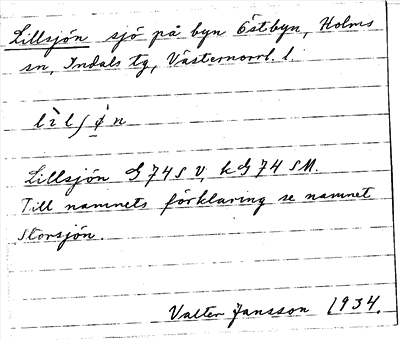 Lillsjön sjö på byn Östbyn, Holms
sn, Indals tg, Västernorrl. l.
lìlʃø̀n
Lillsjön G 74 S V, k G 74 SM.
Till namnets förklaring se namnet
Storsjön.
Valter Jansson 1934.